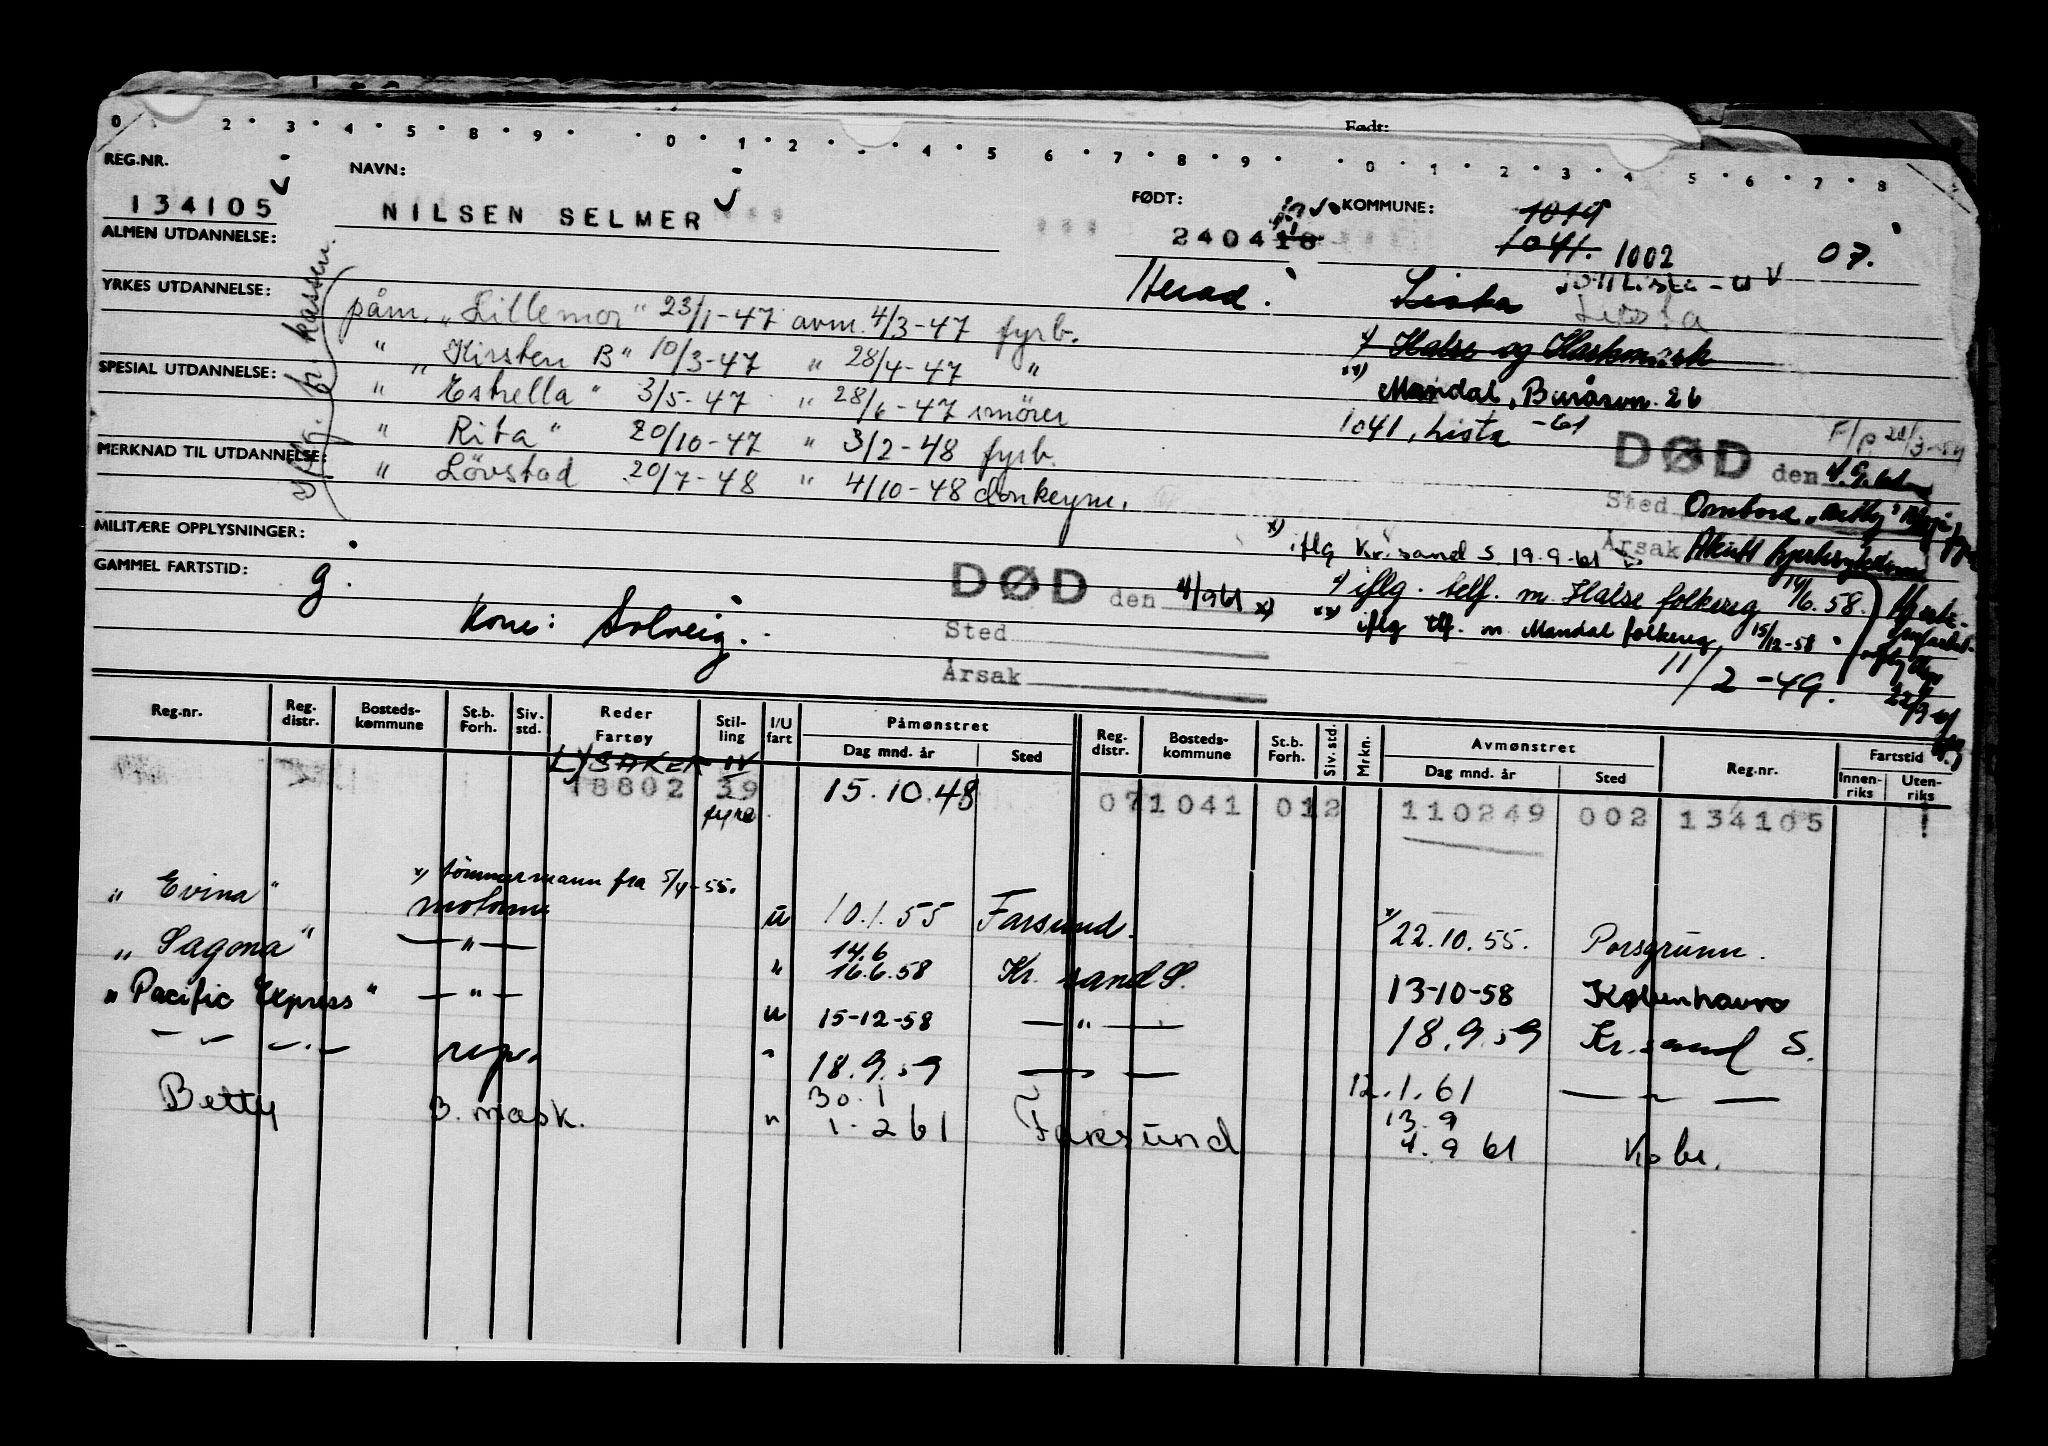 Født:
0 2 3 4 5 8 9 0 1 2 4 5 6 7 8 9 0 1 2 3 4 5 6 7 8
REG.NR.
134105
NAVN:
NILSEN SELMER
FØDT:
240418
KOMMUNE:
1041. 1002
07.
ALMEN UTDANNELSE:
Herad.
Lista
Lista
YRKES UTDANNELSE:
påm. "Lillemor" 23/1-47 avm. 4/3-47 fyrb.
" "Kirsten B" 10/3-47 " 28/4-47 "
Halse og Harkmark
SPESIAL UTDANNELSE:
" Estrella" 3/5-47 " 28/6-47 smører
xx) Mandal, Buråsvn. 26
" Rita" 20/10-47 " 3/2-48 fyrb.
1041, Lista -61
MERKNAD TIL UTDANNELSE:
" Lövstad 20/7-48 " 4/10-48 donkeym.
DØD den
Sted Ombord "Betty"
Årsak Akutt
MILITÆRE OPPLYSNINGER:
x) iflg Kr.sand S. 19.9-61
GAMMEL FARTSTID:
g.
DØD den 4/9 61 x)
Sted
Årsak
x) iflg. telf. m. Halse folkereg 14/6.58.
xx) iflg tlf. m. Mandal folkereg. 15/12-58
Kone: Solveig.
11/2-49.
Reg.nr. Reg. distr. Bosteds-kommune St.b. Forh. Siv. std. Reder Fartøy Stil-ling I/U fart Påmønstret Dag mnd. år Sted Reg. distr. Bosteds-kommune St.b. Forh. Siv. std. Mrkn. Avmønstret Dag mnd. år Sted Reg.nr. Fartstid Innen-riks Uten-riks
LYSAKER IV
18802 39 15.10.48 071041 012 110249 002 134105
fyrb
x) tömmermann fra 5/4-55.
"Evina" motorm u 10.1.55 Farsund. x) 22.10.55. Porsgrunn.
14.6
"Sagona" — " — " 16.6.58 Kr. sand S. 13-10-58 København
"Pacific Express" — " — u 15-12-58 — " — 18.9.59 Kr.sand S.
— " — repr. " 18.9.59 — " — 12.1.61 — " —
30.1 13.9
Betty 3. mask. " 1-2 61 Farsund 4.9 61 Kobe.